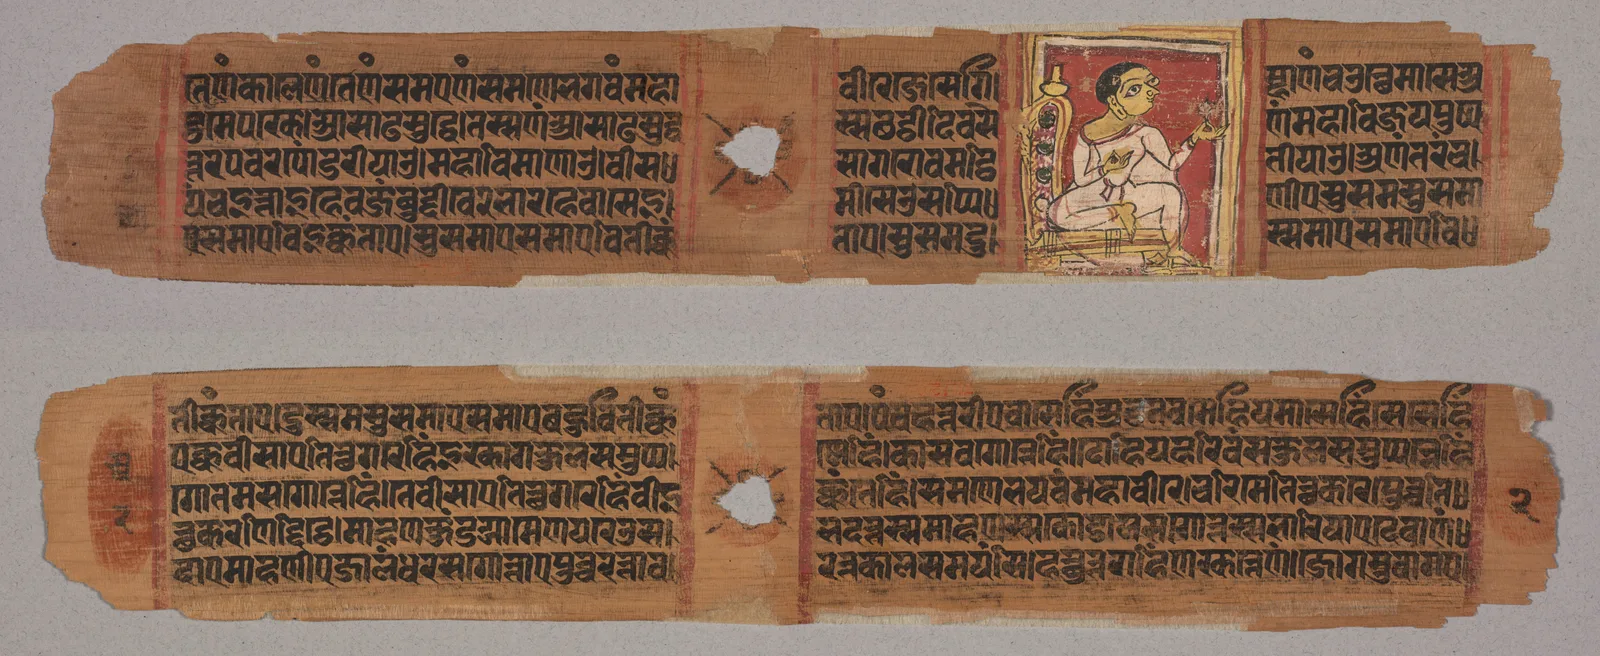 तेणं कालेणं तेणं समएणं समणे भगवं महावीरे जे से गिम्हाणं चउत्थे मासे अट्ठ
मे पक्खे आसाढसुद्धे तस्स णं आसाढसुद्धस्स छट्ठीदिवसेणं महाविजयपुप्फु
त्तरपवरपुंडरीयाओ महाविमाणाओ वीसं सागरोवमट्ठितीयाओ अणंतरं च
यं चइत्ता इहेव जंबुद्दीवे भारहे वासे इमीसे उसप्पिणीए सुसमसुसमा
ए समाए विइक्कंताए सुसमाए समाए वितीक्कंताए सुसमदुस्समाए समाए वि
तीक्कंताए दुस्समसुसमाए समाए बहुवितीक्कंताए पंचहत्तरीए वासेहिं अद्धनवमेहि य मासेहिं सेसेहिं
एक्कवीसाए तित्थगरेहिं इक्खागकुलसमुप्पन्नेहिं कासवगोत्तेहिं दोहि य हरिवंसकुलसमुप्पन्नेहिं
गोतमसगोत्तेहिं तेवीसाए तित्थगरेहिं वीइक्कंतेहिं समणे भगवं महावीरे चरिमतित्थकरे पुव्वति
त्थकरणिद्दिट्ठे माहणकुंडग्गामे णयरे उसभदत्तस्स माहणस्स कोडालसगोत्तस्स भारियाए देवाणं
दाए माहणीए जालंधरसगोत्ताए पुव्वरत्तावरत्तकालसमयंसि हत्थुत्तराहिं णक्खत्तेणं जोगमुवागए
२